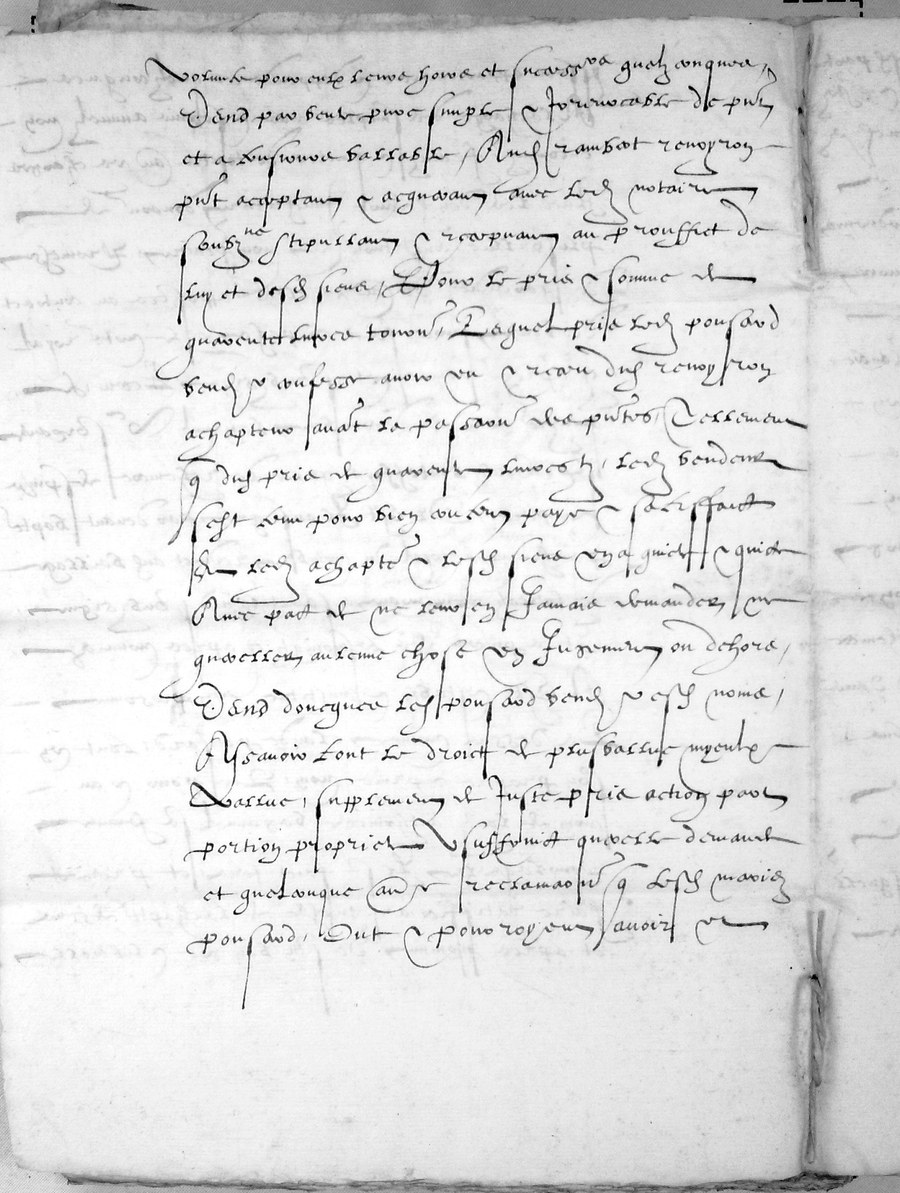 volunte pour eulx leurs hoirs et success.rs quelzconques,
Vend par vente pure simple & Irrevocable de pnt
et a tousiours vallable, Aud rambert renoyron
pnt acceptant & acquerant avec led notaire
soubz.ne stipullant & recepvant au prouffict de
luy et desd siens, Pour le pris & somme de
quarente livres tourn, Lequel pris led ponsard
vend.r confesse avoir eu & receu dud renoyron
achapteur avant la passaon des pntes, Tellement
q dud pris de quarente livres tz, led vendeur
sest tenu pour bien content payé & satisffaict
Et led achapter & lesd siens en a quicté & quicte
Avec pact de ne leur en Jamais demander ne
quereller aulcune chose en Jugement ou dehors,
Vend doncques led ponsard vend.r esd noms,
Asscavoir tout le droict de plusvallue myeulx
vallue, supplement de Juste pris action part
portion proprieté Usuffruict querelle demande
et quelconque aultre reclamaon q lesd mariez
ponsard, Ont & pourroyent avoir et